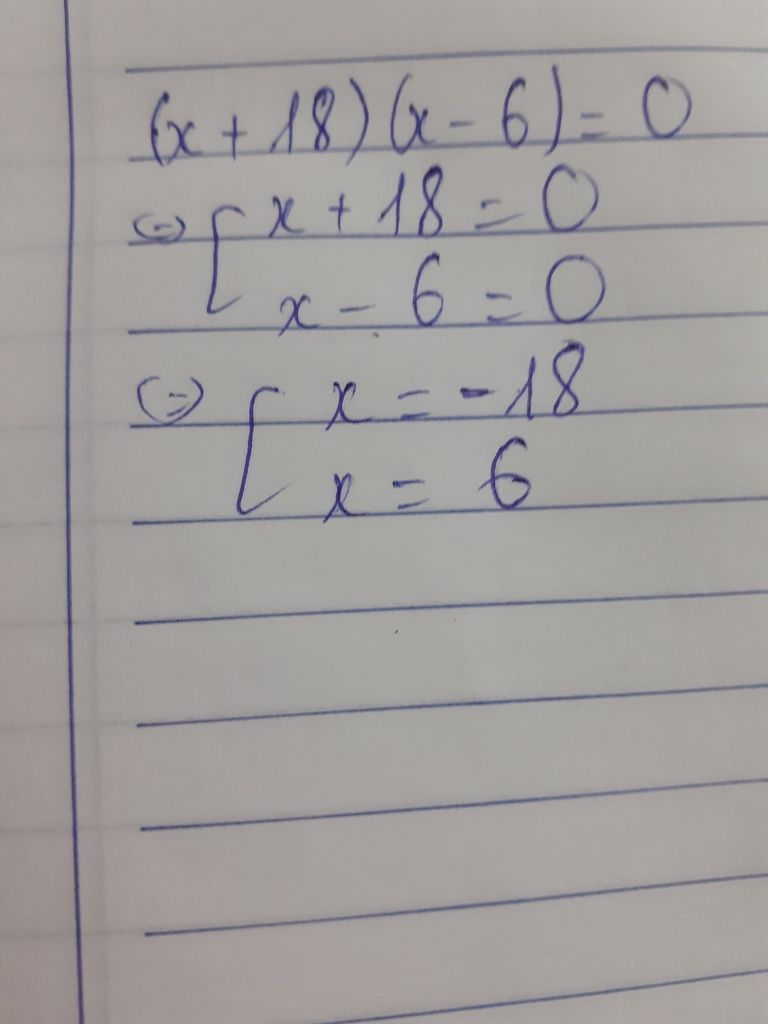 (x + 18)(x - 6) = 0
⇔ [ x + 18 = 0
x - 6 = 0
⇔ [ x = -18
x = 6